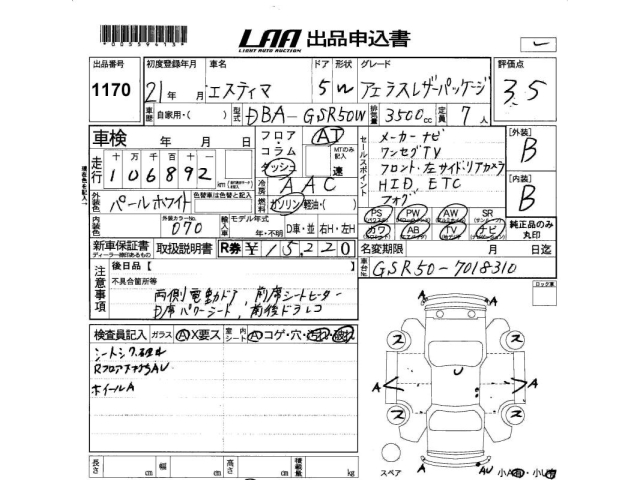 LAA 出品申込書
LIGHT AUTO AUCTION
出品番号 初度登録年月 車名 ドア 形状 グレード 評価点
1170 21年 月 エスティマ 5 W アエラスレザーパッケージ 3.5
車歴 自家用・( ) 型式 DBA-GSR50W 排気量 3500cc 定員 7人
車検 年 月 日
フロア・コラム ダッシュ AT MTのみ記入 速
走行 十万千百十一
106892 km
セールスポイント
メーカーナビ
ワンセグTV
フロント・左サイド・リアカメラ
HID ETC
フォグ
[外装] B
[内装] B
外装色 パールホワイト 色替車は色替と記入
冷房 AAC
燃料 ガソリン/軽油・( )
内装色 外装カラーNo. 070 輸入車 モデル年式 年・不明 D車・並 右H・左H
PS PW AW SR
カワ AB TV ナビ
純正品のみ丸印
新車保証書 取扱説明書 R券 ¥15,220 名変期限 月 日迄
ディーラー捺印あるもの
車台No. GSR50-7018310
注意事項
後日品【 】
不具合箇所等
両側電動ドア, 前席シートヒーター
D席パワーシート, 前後ドラレコ
ロック車
検査員記入 ガラス A X要ス 室内シート A コゲ・穴・汚れ・破れ
ホイールA
A A
U
スペア A AU
長さ cm 幅 cm 高さ cm 積載量 kg